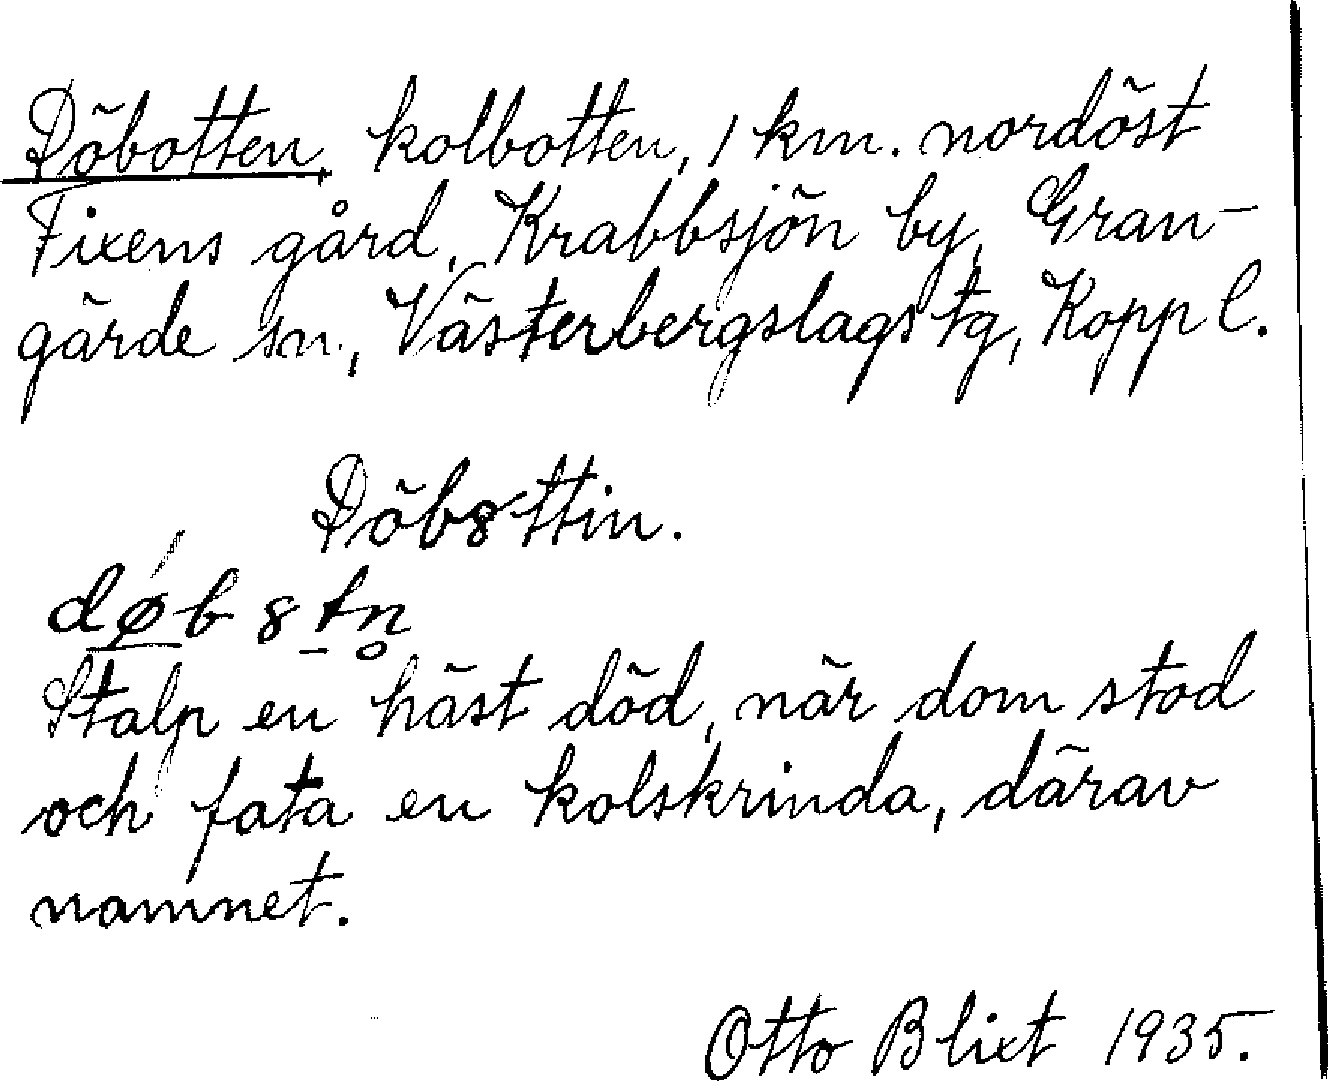 Döbotten, kolbotten, 1 km. nordöst
Fixens gård, Krabbsjön by, Gran-
gärde sn., Västerbergslags tg, Kopp l.
Döb8ttin.
dǿb8tn̥
Stalp en häst död, när dom stod
och fata en kolskrinda, därav
namnet.
Otto Blixt 1935.